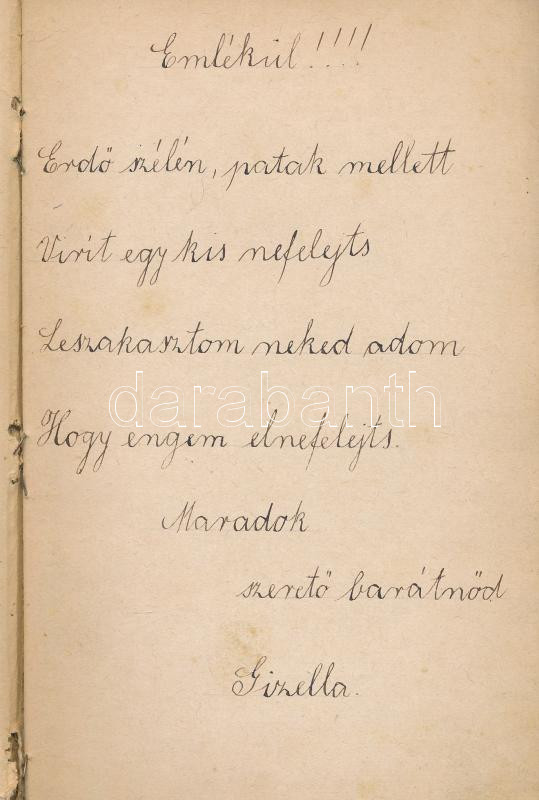 Emlékül!!!!
Erdő szélén, patak mellett
Virít egy kis nefelejts
Leszakasztom neked adom
darabanth
Hogy engem elnefelejts.
Maradok
szerető barátnőd
Gizella.